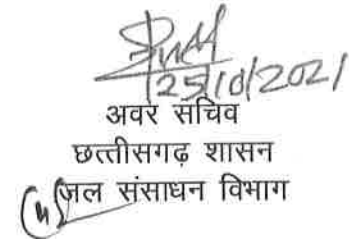 25/10/2021
अवर सचिव
छत्तीसगढ़ शासन
जल संसाधन विभाग